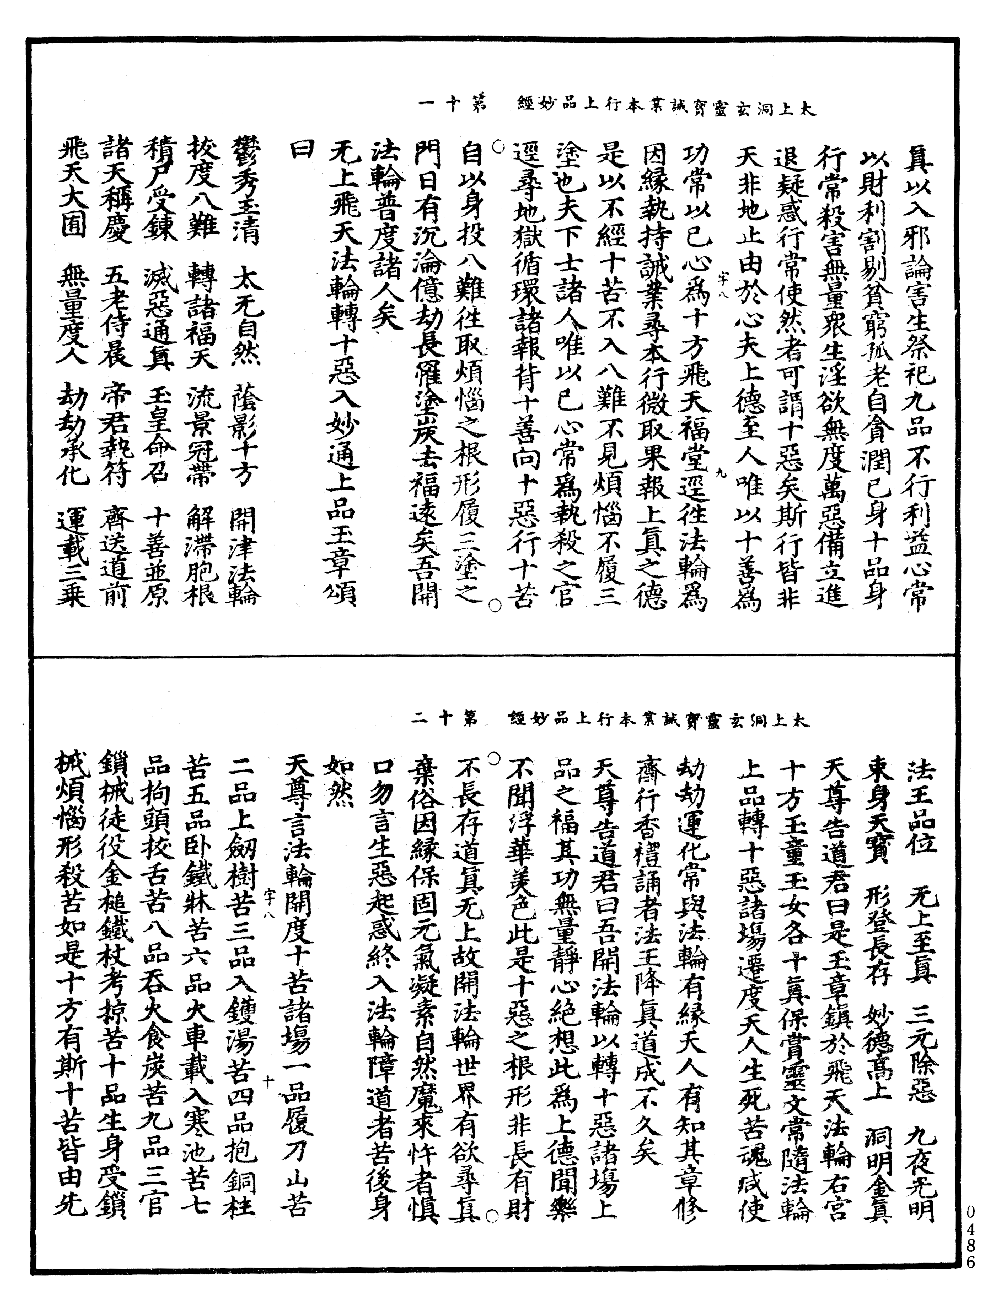 太上洞玄靈寶誡業本行上品妙經　第十一
真以入邪論害生祭祀九品不行利益心常
以財利割剔貧窮孤老自貪潤已身十品身
行常殺害無量衆生淫欲無度萬惡備立進
退疑惑行常使然者可謂十惡矣斯行皆非
天非地止由於心夫上德至人唯以十善爲
字八　九
功常以已心爲十方飛天福堂逕徃法輪爲
因緣執持誡業尋本行微取果報上真之德
是以不經十苦不入八難不見煩惱不履三
塗也夫下士諸人唯以已心常爲執殺之官
逕尋地獄循環諸報背十善向十惡行十苦
自以身投八難徃取煩惱之根形履三塗之
門日有沉淪億劫長罹塗炭去福遠矣吾開
法輪普度諸人矣
无上飛天法輪轉十惡入妙通上品玉章頌
曰
鬱秀玉清　太无自然　蔭影十方　開津法輪
拔度八難　轉諸福天　流景冠帶　解滯胞根
積尸受鍊　滅惡通真　玉皇命召　十善並原
諸天稱慶　五老侍晨　帝君執符　齊送道前
飛天大囿　無量度人　劫劫承化　運載三乗
太上洞玄靈寶誡業本行上品妙經　第十二
法王品位　无上至真　三元除惡　九夜光明
東身天寳　形登長存　妙德髙上　洞明金真
天尊告道君曰是玉章鎮於飛天法輪右宮
十方玉童玉女各千真保賞靈文常隨法輪
上品轉十惡諸塲遷度天人生死苦魂咸使
劫劫運化常與法輪有緣天人有知其章修
齋行香禮誦者法王降真道成不久矣
天尊告道君曰吾開法輪以轉十惡諸塲上
品之福其功無量靜心絶想此爲上德聞樂
不聞浮華美色此是十惡之根形非長有財
不長存道真无上故開法輪世界有欲尋真
棄俗因緣保固元氣凝素自然魔來忤者慎
口勿言生惡起惑終入法輪障道者苦後身
如然
天尊言法輪開度十苦諸塲一品履刀山苦
字八　十
二品上劒樹苦三品入鑊湯苦四品抱銅柱
苦五品卧鐵牀苦六品火車載入寒池苦七
品拘頭抜舌苦八品吞火食炭苦九品三官
鎖械徒役金槌鐵杖考掠苦十品生身受鎖
械煩惱形殺苦如是十方有斯十苦皆由先
0486